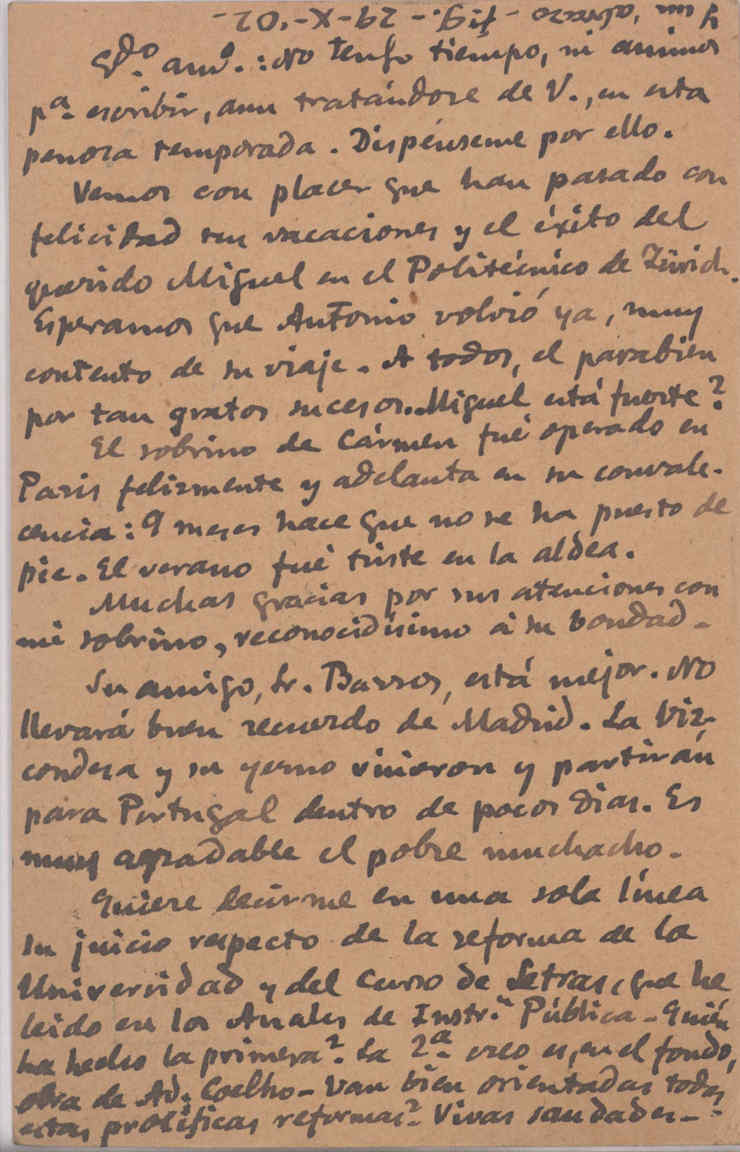 Gdo. amo.: No tengo tiempo, ni animos
pa. escribir, aun tratándose de V., en esta
penosa temporada. Dispénseme por ello.
Vemos con placer que han pasado con
felicidad sus vacaciones y el éxito del
querido Miguel en el Politécnico de Zürich.
Esperamos que Antonio volvió ya, muy
contento de su viaje. A todos, el parabien
por tan gratos sucesos. Miguel está fuerte?
El sobrino de Cármen fué operado en
Paris felizmente y adelanta en su convale-
cencia: 9 meses hace que no se ha puesto de
pie. El verano fué triste en la aldea.
Muchas gracias por sus atenciones con
mi sobrino, reconocidísimo á su bondad-
Su amigo, Sr. Barros, está mejor. No
llevará buen recuerdo de Madrid. La Viz-
condesa y su yerno vinieron y partirán
para Portugal dentro de pocos dias. Es
muy agradable el pobre muchacho.
Quiere decirme en una sola línea
su juicio respecto de la reforma de la
Universidad y del Curso de Letras, que he
leido en los Anales de Instr.n Pública - Quién
ha hecho la primera? La 2a. creo es, en el fondo,
obra de Ad. Coelho - Van bien orientadas todas
estas prolíficas reformas? Vivas saudades -
29-X-02-